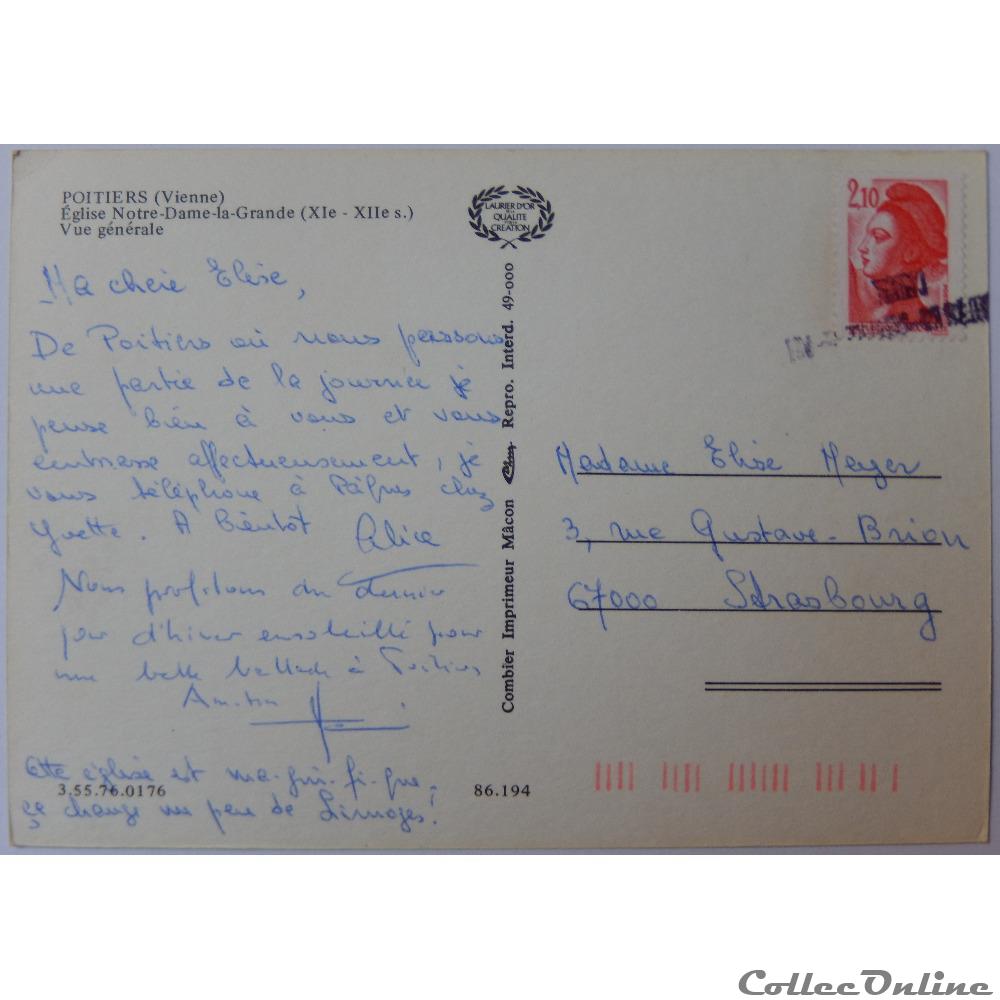 POITIERS (Vienne)
Église Notre-Dame-la-Grande (XIe - XIIe s.)
Vue générale
LAURIER D'OR
DE LA
QUALITE
CREATION
2,10
Ma chère Elise,
De Poitiers où nous passons
une partie de la journée je
pense bien à vous et vous
embrasse affectueusement, je
vous téléphone à Pâques chez
Yvette. A bientôt Alice
Nous profitons du dernier
jour d'hiver ensoleillé pour
une belle ballade à Poitiers
Cette église est ma-gni-fi-que,
ça change un peu de Limoges!
3.55.76.0176
86.194
Combier Imprimeur Mâcon Repro. Interd. 49-000
Madame Elise Meyer
3, rue Gustave-Brion
67000 Strasbourg
CollecOnline